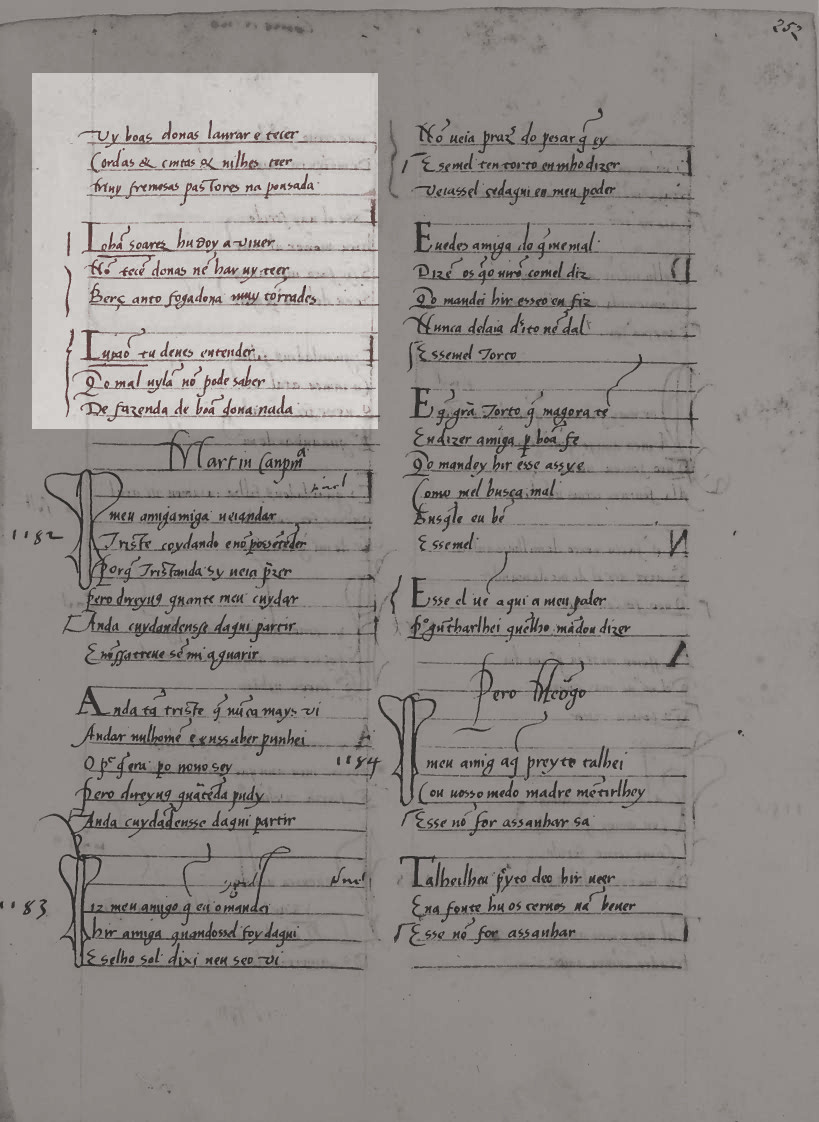 252
Vy boas donas laurar e tecer
Cordas & cintas & nilhes teer
muy fremosas pastores na pousada
Lobã soarez hu eu soy a viuer
Nõ tecẽ donas nẽ har uy teer
Berç anto fogadona muy torrades
tu deues entender
Qo mal uylã nõ pode saber
De fazenda de boã dona nada
Martin
1182
meu amigamiga ueiandar
Triste coydando e nõ
Porq̃ Tristanda sy ueia p̃zer
pero direyuꝯ quante meu cuydar
Anda cuydandensse daqui partir
sẽ mi aguarir
Anda tã triste q̃ nũca mays vi
Andar nulhomẽ e saber punhei
O q̃ era po nono sey
Pero direyuꝯ pudy
Anda cuydãdensse daqui partir
1183
iz meu amigo q̃ eu omandei
hir amiga quandossel foy daqui
E selho sol dixi nen seo vi
Nõ ueia praz do pesar q̃ ey
E semel ten torto enmho dizer
Veiassel çedaqui en meu poder
Euedes amiga do q̃ me mal
Dizẽ os comel diz
Qo mandei hir esseo eu fiz
Nunca delaia nẽ dal
Essemel Torto
E q̃ grã Torto q̃ magora tẽ
En dizer amiga p boã fe
Qo mandey hir esse assy e
Como mel busca mal
eu bẽ
Essemel
Esse el uẽ aqui a meu poder
quẽlho mãdou dizer
Pero Meogo
1184
meu amig aq̃ preyto talhei
Cou uosso medo madre mẽtirlhey
Esse nõ for assanhar sa
Talheilheu p̃yto deo hir ueer
Ena fonte hu os ceruos uã beuer
Esse nõ for assanhar